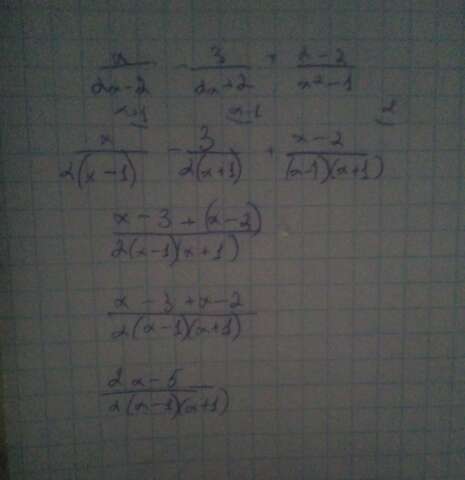 x/(2x-2) - 3/(2x+2) + (x-2)/(x²-1)
x+1 x-1 2
x/(2(x-1)) - 3/(2(x+1)) + (x-2)/((x-1)(x+1))
(x-3+(x-2))/(2(x-1)(x+1))
(x-3+x-2)/(2(x-1)(x+1))
(2x-5)/(2(x-1)(x+1))